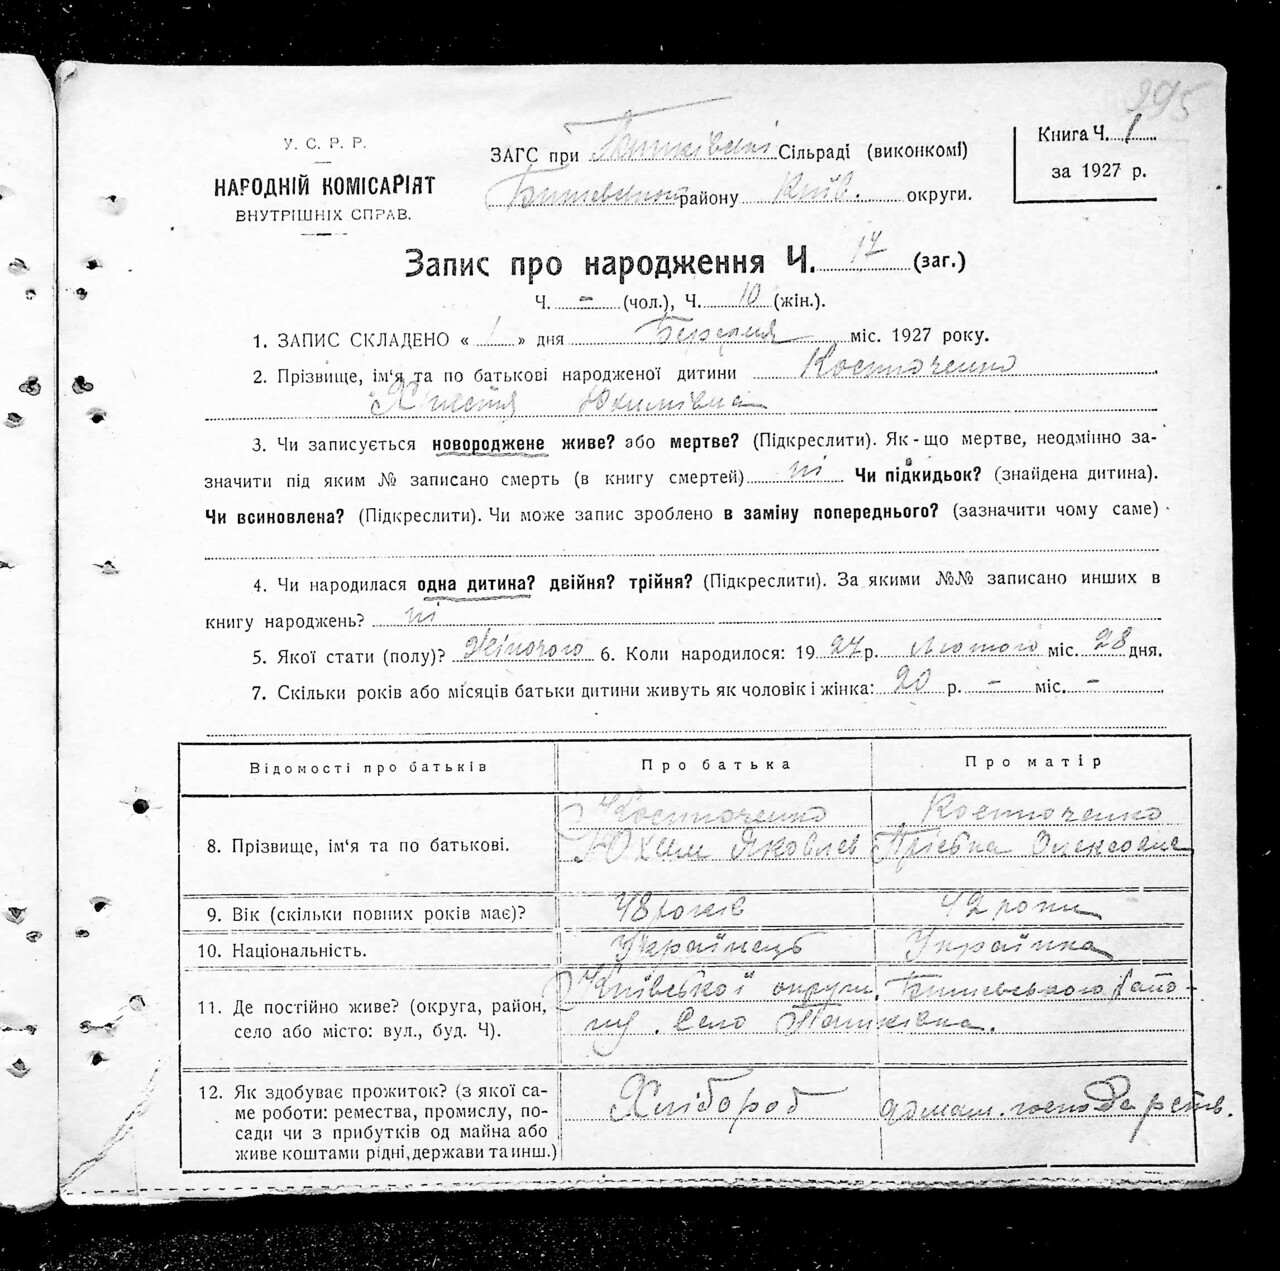 295
У. С. Р. Р.
НАРОДНІЙ КОМІСАРІЯТ
ВНУТРІШНІХ СПРАВ.
ЗАГС при Пашківській Сільраді (виконкомі)
Бишевського району Київ. округи.
Книга Ч. 1
за 1927 р.
Запис про народження Ч. 17 (заг.)
Ч. – (чол.), Ч. 10 (жін.).
1. ЗАПИС СКЛАДЕНО « 1 » дня Березня міс. 1927 року.
2. Прізвище, ім'я та по батькові народженої дитини Костюченко
Христя Юхимівна
3. Чи записується новороджене живе? або мертве? (Підкреслити). Як-що мертве, неодмінно за-
значити під яким № записано смерть (в книгу смертей) ні Чи підкидьок? (знайдена дитина).
Чи всиновлена? (Підкреслити). Чи може запис зроблено в заміну попереднього? (зазначити чому саме)
4. Чи народилася одна дитина? двійня? трійня? (Підкреслити). За якими №№ записано инших в
книгу народжень? ні
5. Якої стати (полу)? Жіночого 6. Коли народилося: 1927 р. лютого міс. 28 дня.
7. Скільки років або місяців батьки дитини живуть як чоловік і жінка: 20 р. – міс. –
Відомості про батьків
Про батька
Про матір
8. Прізвище, ім'я та по батькові.
Костюченко
Юхим Яковлев
Костюченко
Олексієвна
9. Вік (скільки повних років має)?
48 років
42 роки
10. Національність.
Українець
Українка
11. Де постійно живе? (округа, район,
село або місто: вул., буд. Ч).
Київської округи, Бишевського райо-
ну. Село Пашківка.
12. Як здобуває прожиток? (з якої са-
ме роботи: ремества, промислу, по-
сади чи з прибутків од майна або
живе коштами рідні, держави та инш.)
Хлібороб
домаш. господарств.